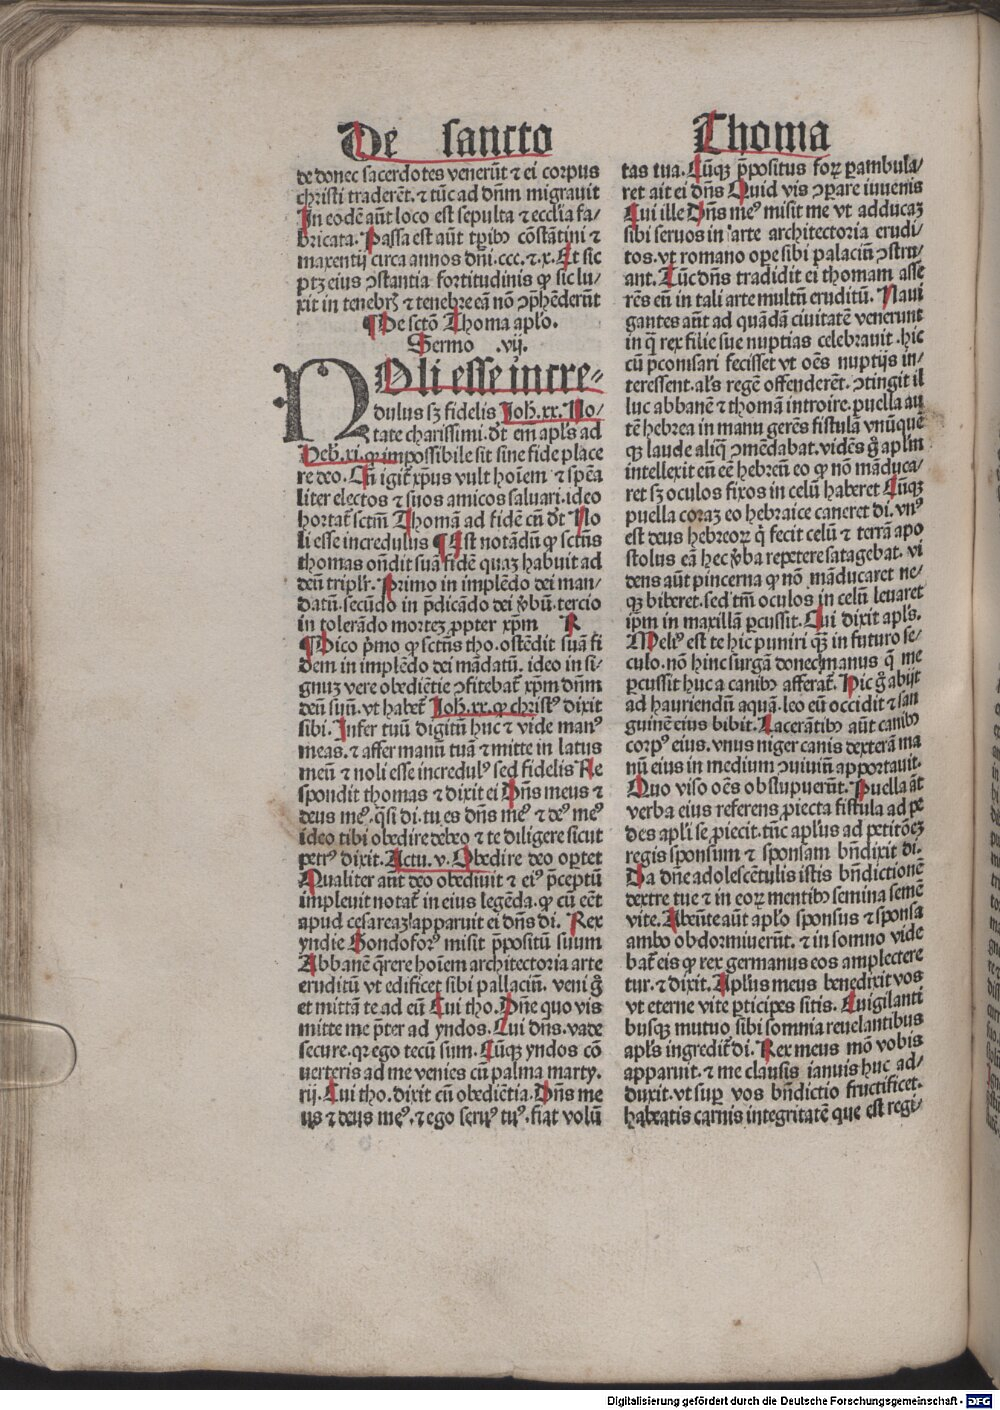 De sancto Thoma
de donec sacerdotes venerūt ⁊ ei corpus
christi traderēt. ⁊ tūc ad dn̄m migrauit
In eodē aūt loco est sepulta ⁊ ecclīa fa/
bricata. Passa est aūt tꝑib9 cōstātini ⁊
maxentij circa annos dn̄i. ccc. ⁊. x. Et sic
ptꝫ eius ↄstantia fortitudinis ꝙ sic lu/
xit in tenebrꝭ ⁊ tenebre eā nō ↄp̄hēderūt
¶ De sctō Thoma apl'o.
Sermo .vij.
NOli esse incre-
dulus sꝫ fidelis Joh̄. xx. No/
tate charissimi. dt̄ em̄ apl's ad
Heb̄. xi. ꝙ impossibile sit sine fide place
re deo. Cū igit̄ xp̄us vult hoīem ⁊ spēa
liter electos ⁊ suos amicos saluari. ideo
hortat̄ sctm̄ Thomā ad fidē cū dt̄ No
li esse incredulus ¶ Est notādū ꝙ sctūs
thomas on̄dit suā fidē quaꝫ habuit ad
deū triplr̄. Primo in implēdo dei man/
datū. secūdo in p̄dicādo dei v̄bū. tercio
in tolerādo morteꝫ ꝓpter xp̄m R
¶ Dico p̄mo ꝙ sctūs tho. ostēdit suā fi
dem in implēdo dei mādatū. ideo in si/
gnuꝫ vere obediētie ↄfitebat̄ xp̄m dn̄m
deū suū. vt habet̄ Joh̄. xx. ꝙ christ9 dixit
sibi. Infer tuū digitū huc ⁊ vide man9
meas. ⁊ affer manū tuā ⁊ mitte in latus
meū ⁊ noli esse incredul9 sed fidelis Re
spondit thomas ⁊ dixit ei Dn̄s meus ⁊
deus me9. q̄si di. tu es dn̄s me9 ⁊ de9 me9
ideo tibi obedire debeo ⁊ te diligere sicut
petr9 dixit. Actu. v. Obedire deo optet
Qualiter aūt deo obediuit ⁊ ei9 p̄ceptū
impleuit notat̄ in eius legēda. ꝙ cū eēt
apud cesareaꝫ apparuit ei dn̄s di. Rex
yndie Gondofor9 misit p̄positū suum
Abbanē q̄rere hoīem architectoria arte
eruditū vt edificet sibi pallaciū. veni g̊
et mittā te ad eū Cui tho. Dn̄e quo vis
mitte me p̄ter ad yndos. Cui dn̄s. vade
secure. qꝛ ego tecū sum. Cūqꝫ yndos cō
uerteris ad me venies cū palma marty.
rij. Cui tho. dixit cū obediētia. Dn̄s me
us ⁊ deus me9. ⁊ ego seru9 tu9. fiat volū
tas tua. Cūqꝫ p̄positus forꝝ ꝑambula/
ret ait ei dn̄s Quid vis ↄparare iuuenis
Cui ille Dn̄s me9 misit me vt adducaꝫ
sibi seruos in arte architectoria erudi/
tos. vt romano ope sibi palaciū ↄstru/
ant. Tūc dn̄s tradidit ei thomam asse
rēs eū in tali arte multū eruditū. Naui
gantes aūt ad quādā ciuitatē venerunt
in q̄ rex filie sue nuptias celebrauit. hic
cū p̄conisari fecisset vt oēs nuptijs in/
teressent. als regē offenderēt. ↄtingit il
luc abbanē ⁊ thomā introire. puella au
tē hebrea in manu gerēs fistulā vnūquē
qꝫ laude aliq̄ ↄmēdabat. vidēs g̊ apl'm
intellexit eū eē hebreū eo ꝙ nō māduca/
ret sꝫ oculos fixos in celū haberet Cūqꝫ
puella coraꝫ eo hebraice caneret di. vn9
est deus hebreoꝝ q̄ fecit celū ⁊ terrā apo
stolus eā hec v̄ba repetere satagebat. vi
dens aūt pincerna ꝙ nō māducaret ne/
qꝫ biberet. sed tm̄ oculos in celū leuaret
ip̄m in maxillā ꝑcussit. Cui dixit apl's.
Meli9 est te hic puniri q̄ꝫ in futuro se/
culo. nō hinc surgā donec manus q̄ me
ꝑcussit huc a canib9 afferat̄. Hic g̊ abijt
ad hauriendū aquā. leo eū occidit ⁊ san
guinē eius bibit. Lacerātib9 aūt canib9
corp9 eius. vnus niger canis dexterā ma
nū eius in medium ↄuiuiū apportauit.
Quo viso oēs obstupuerūt. Puella aūt
verba eius referens ꝓiecta fistula ad pe
des apl'i se ꝓiecit. tūc apl'us ad petitōeꝫ
regis sponsum ⁊ sponsam bn̄dixit di.
Da dn̄e adolescētulis istis bn̄dictionē
dextre tue ⁊ in eoꝝ mentib9 semina semē
vite. Abeūte aūt apl'o sponsus ⁊ sponsa
ambo obdormiuerūt. ⁊ in somno vide
bāt eis ꝙ rex germanus eos amplectere
tur. ⁊ dixit. Apl'us meus benedixit vos
vt eterne vite ꝑticipes sitis. Euigilanti
busqꝫ mutuo sibi somnia reuelantibus
apl's ingredit̄ di. Rex meus mō vobis
apparuit. ⁊ me clausis ianuis huc ad/
duxit. vt suꝑ vos bn̄dictio fructificet.
habeatis carnis integritatē que est regi/
Digitalisierung gefördert durch die Deutsche Forschungsgemeinschaft - DFG